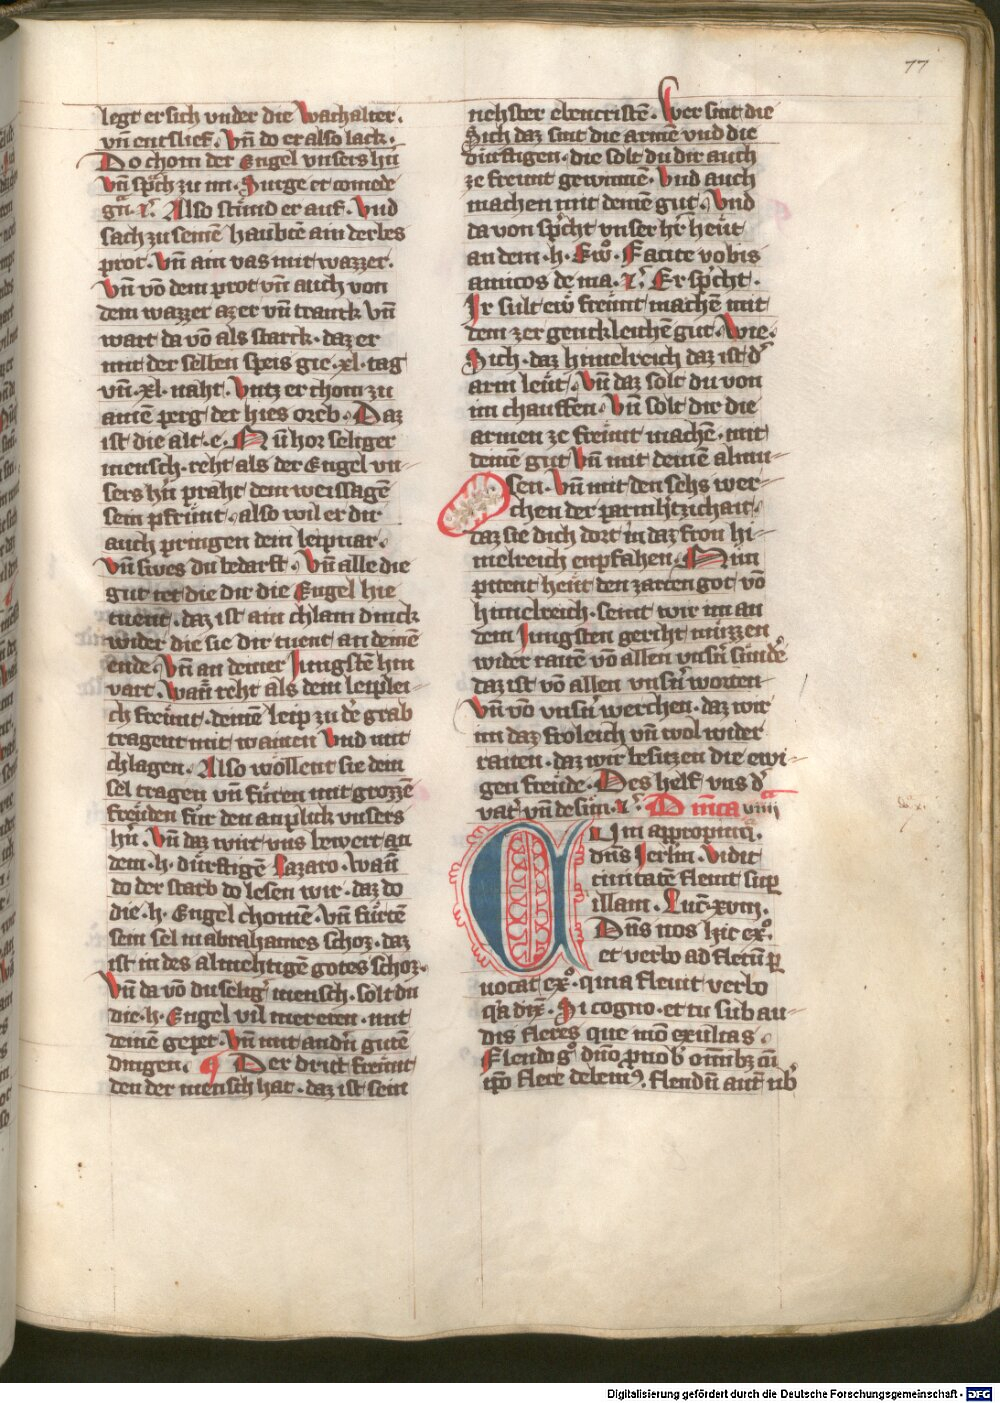 77
legt er sich vnder die wachalter.
vn̄ entslief. Vn̄ do er also lack.
Do chom der Engel vnsers hn̄
vn̄ sprach zu im. Surge et comede
Also stůnd er auf. Vnd
sach zu seinē haubtē ain derbes
prot. Vn̄ ain vas mit wazzer.
Vn̄ vō dem prot vn̄ auch von
dem wazzer az er vn̄ tranck vn̄
wart da vō als starck. daz er
mit der selben speis gie .xl. tag
vn̄ .xl. naht. Vntz er chom zu
ainē perg der hies oreb. Daz
ist die alt .e. Nū hor seliger
mensch. reht als der Engel vn-
sers hn̄ praht dem weissagē
sein pfrŭnt. also wil er dir
auch pringen dem leipnar.
vn̄ swes du bedarft. Vn̄ alle die
gut tet die dir die Engel hie
tuent. daz ist ain chlain dinck
wider die sie dir tuent an deinē
ende. Vn̄ an deiner Jungstē hin
vart. Wan̄ reht als dem leiplei-
ch freŭnt. deinē leip zu dē grab
tragent mit wainen Vnd mit
chlagen. Also wŏllent sie dem
sel tragen vn̄ fŭren mit grozzē
freŭden fŭr den anplick vnsers
hn̄. Vn̄ daz wirt vns bewert an
dem .h. dŭrftigē Lazaro. Wan̄
do der starb do lesen wir. daz do
die .h. Engel chomē. Vn̄ fŭrtē
sein sel in abrahames schoz. daz
ist in des almehtigē gotes schoz.
Vn̄ da vō du selig mensch. solt du
die .h. Engel vil mit eren. mit
deinē gepet. Vn̄ mit andn̄ gutē
dingen. Der dritt freŭnt
den der mensch hat. daz ist sein
nehster ebencristē. Wer sint die
Sich daz sint die armē vnd die
dŭrftigen. die solt du dir auch
ze freunt gewinnē. Vnd auch
machen mit deinē gut. Vnd
da von spricht vnser hr̄ heŭt
an dem .h. Ewō. Facite vobis
amicos de ma. Er spricht.
Ir sult ew freŭnt machē mit
dem zergencklichē gut. Wie.
Sich. daz himelreich daz ist der
arm leŭt. Vn̄ daz solt du von
im chauffen. Vn̄ solt dir die
armen ze freŭnt machē. mit
deinē gut Vn̄ mit deinē almu-
sen. Vn̄ mit den sehs wer-
chen der parmhtzichait.
daz sie dich dort in daz fron hi-
melreich enpfahen. Nun
pitent heŭt den zarten got vō
himelreich. seint wir im an
dem Jungsten gericht mŭzzen
wider raitē vō allen vnsn̄ sŭndē
daz ist vō allen vnsn̄ worten
Vn̄ vō vnsn̄ werchen. daz wir
im daz frolich vn̄ wol wider
raiten. daz wir besitzen die ewi-
gen freŭde. Des helf vns der
vat vn̄ de sun. Dnīca viiii
Cum appropinq.
dn̄s Jerlm. Vidit
ciuitatē fleuit sup
illam. Luc. xviii.
Dn̄s nos hic exo.
et verbo ad fletū p
uocat exo. quia fleuit verbo
q̄a dix. Si cogno. et tu sub au-
dis fleres que mō exultas.
Flendo
ipo flere delem9. flendū aut ub